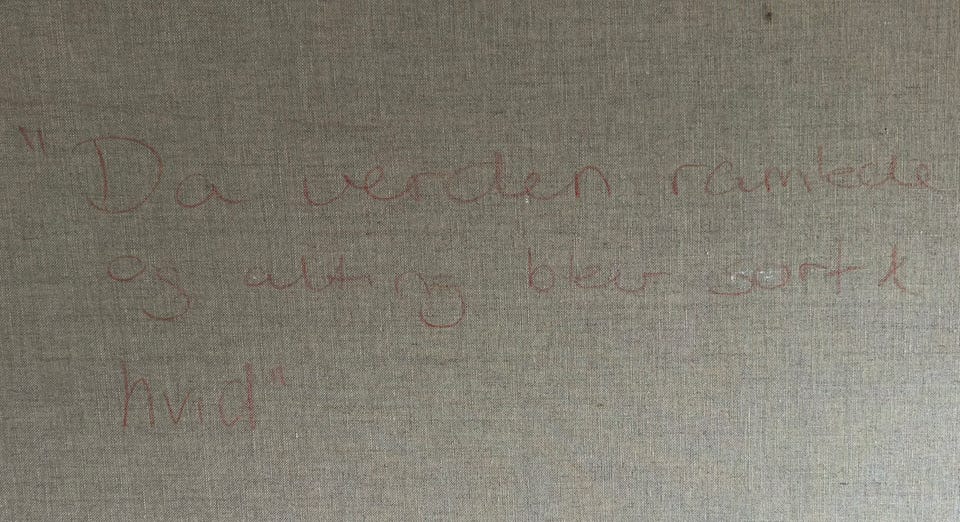 "Da verden ramlede
og alting blev sort &
hvid"